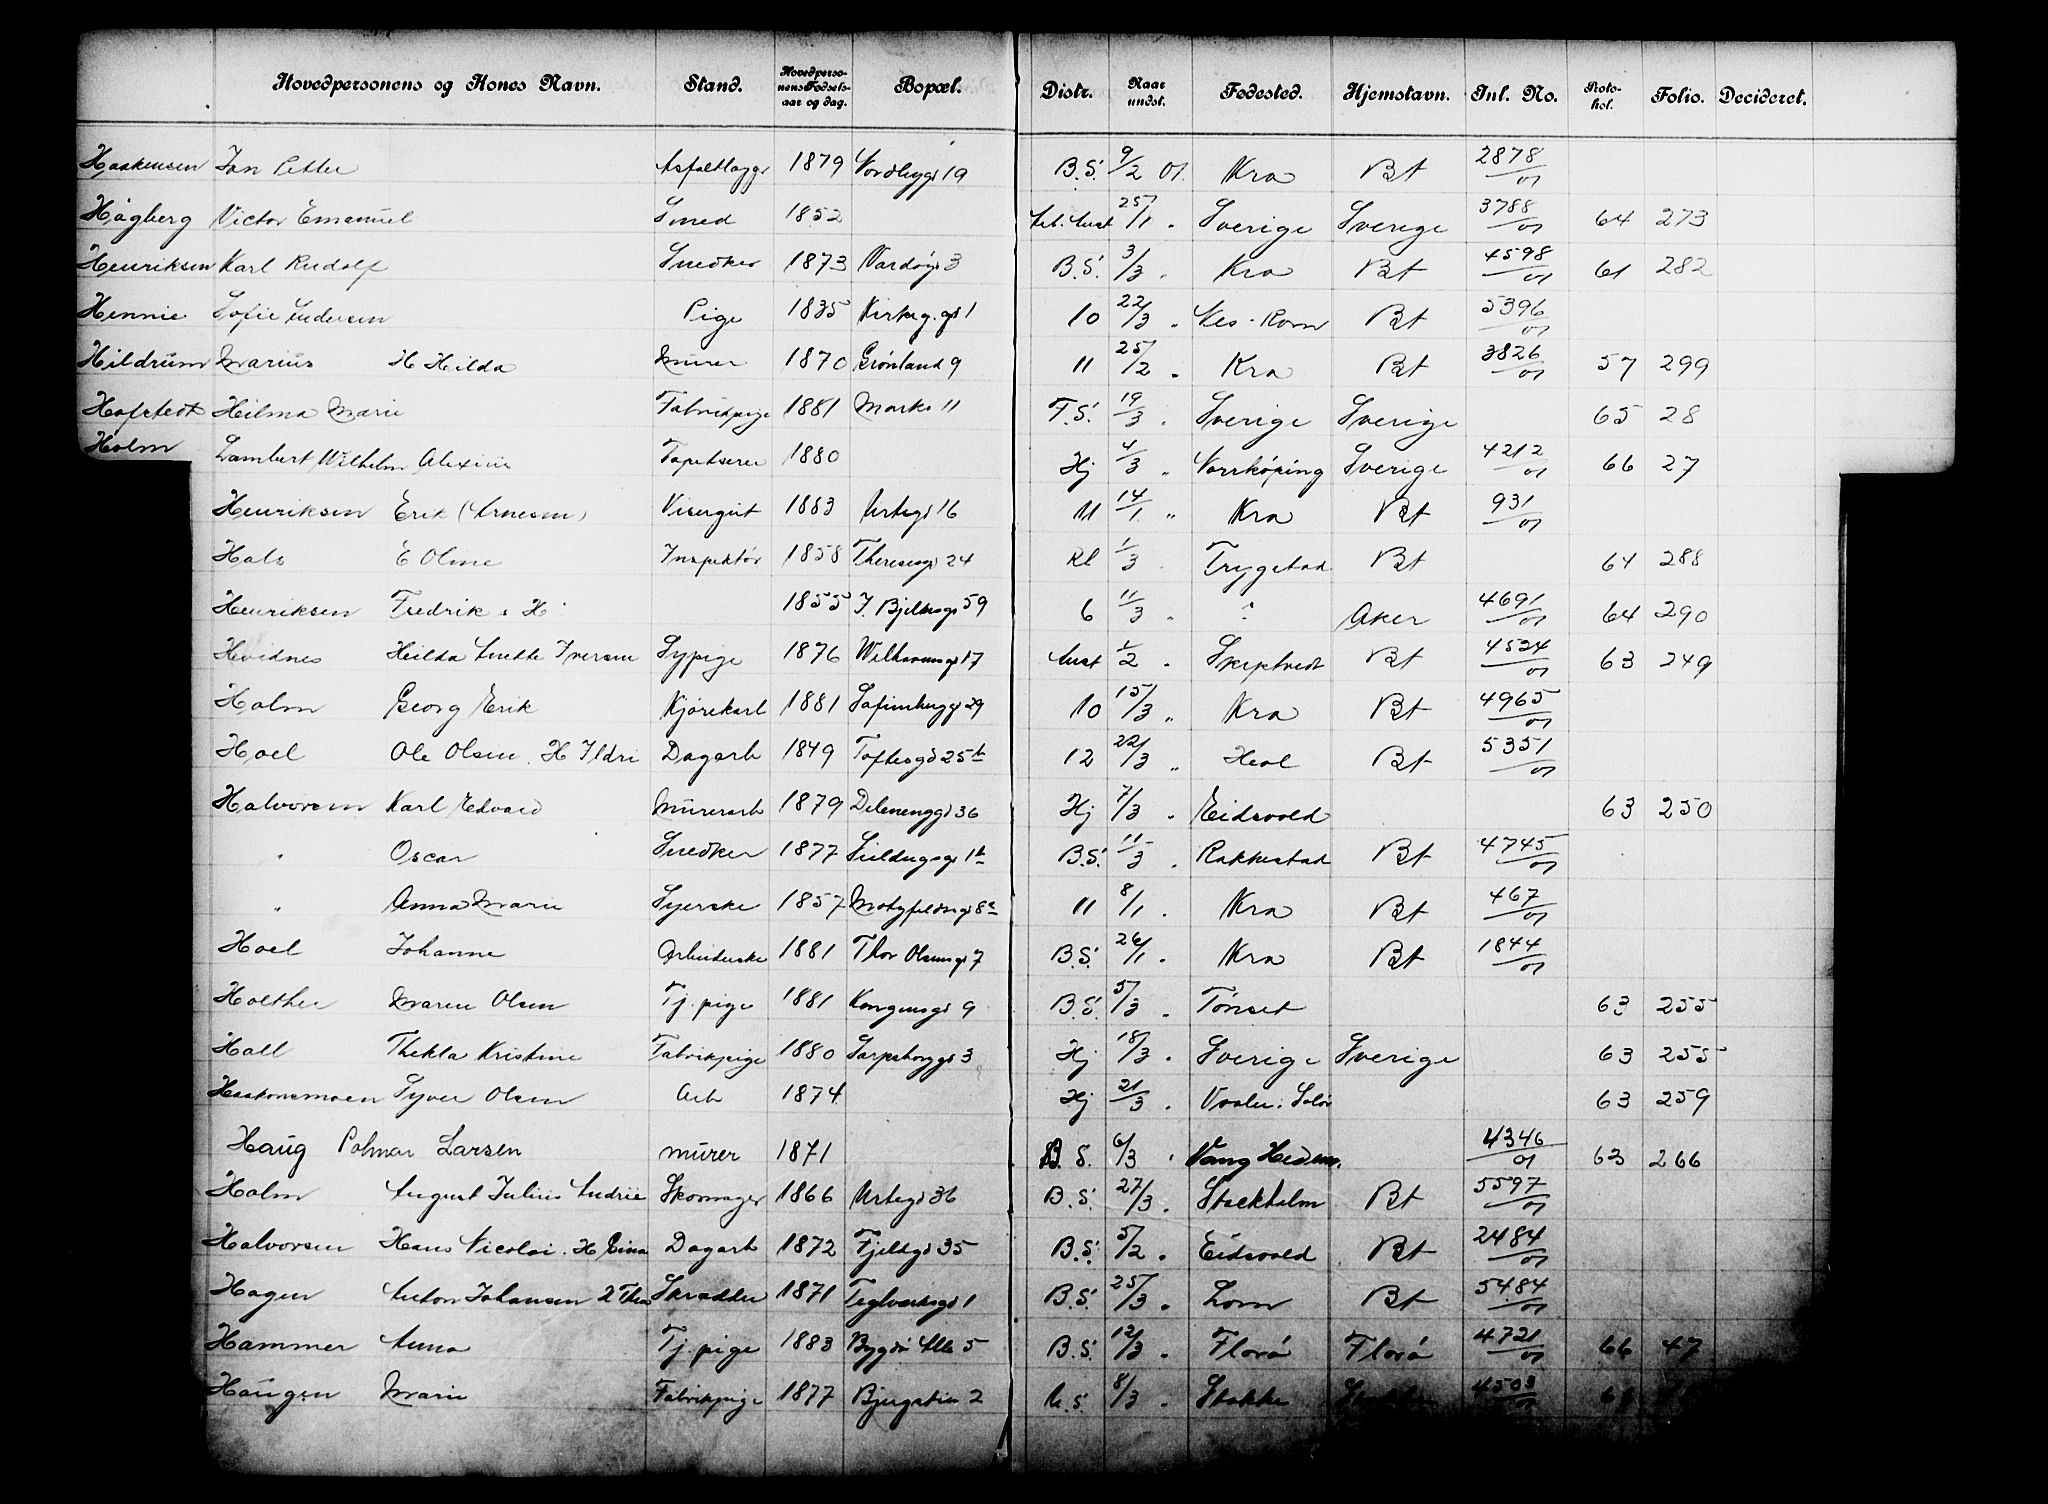 Hovedpersonens og Kones Navn. Stand. Hovedpersonens Fødselsaar og dag. Bopæl. Distr. Naar undst. Fødested. Hjemstavn. Inl. No. Protokol. Folio. Decideret.
Haakensen Jan Petter Asfaltlægger 1879 Nordbygd 19 B.S. 9/2 01. Kra Bt 2878/01
Hågberg Victor Emanuel Smed 1852 25/1 " Sverige Sverige 3788/01 64 273
Henriksen Karl Rudolf Snedker 1873 Vardøgd 3 B.S. 3/3 " Kra Bt 4598/01 61 282
Hennie Sofie Andersen Pige 1835 Kirkeg.gd 1 10 22/3 " Nes - Rom Bt 5396/01
Hildrum Marius H Hilda Murer 1870 Grønland 9 11 25/2 " Kra Bt 3826/01 57 299
Hofstedt Hilma Marie Fabrikpige 1881 Markv 11 F.S. 19/3 " Sverige Sverige 65 28
Holm Lambert Wilhelm Alexius Tapetserer 1880 Hj 4/3 " Norrköping Sverige 4212/01 66 27
Henriksen Erik (Arnesen) Visergut 1883 Urtegd 16 11 14/1 " Kra Bt 931/01
Hals E Oline Inspektør 1858 Theresesgd 24 Rl 1/3 " Trygstad Bt 64 288
Henriksen Fredrik s H 1855 J. Bjelkesgd 59 6 11/3 " ? Aker 4691/01 64 290
Hvidnes Hilda Anette Iversen Sypige 1876 17 Aust 1/2 " Skiptvedt Bt 4524/01 63 249
Holm Georg Erik Kjørekarl 1881 Sofienbergd 29 10 15/3 " Kra Bt 4965/01
Hoel Ole Olsen. H Ildri Dagarb 1849 Toftesgd 25b 12 22/3 " Hoel Bt 5351/01
Halvorsen Karl Edvard Murerarb 1879 Delenenggd 36 Hj 7/3 " Eidsvold 63 250
" Oscar Snedker 1877 1b B.S. 11/3 " Rakkestad Bt 4745/01
" Anna Marie Syerske 1857 Motzfeldtsgd 8c 11 8/1 " Kra Bt 467/01
Hoel Johanne Arbeiderske 1881 Thor Olsensgd 7 B.S. 26/1 " Kra Bt 1844/01
Holther Maren Olsen Tj. pige 1881 Kongensgd 9 B.S. 5/3 " Tønset 63 255
Hall Thekla Kristine Fabrikpige 1880 Sarpsborggd 3 Hj 18/3 " Sverige Sverige 63 255
Haakonsmoen Syver Olsen Arb 1874 Hj 21/3 " Vaaler i Solør 63 259
Haug Palmar Larsen murer 1871 B. S. 6/3 " Vang Hedem. 4346/01 63 266
Holm August Julius Andrie Skomager 1866 Urtegd 36 B.S. 27/3 " Stockholm Bt 5597/01
Halvorsen Hans Nicolai. H Eina Dagarb 1872 Fjeldgd 35 B.S. 5/2 " Eidsvold Bt 2484/01
Hagen Anton Johansen 2 Thea Skrædder 1871 Teglverksgd 1 B.S. 25/3 " Lom Bt 5484/01
Hammer Anna Tj. pige 1883 Bygdø Alle 5 B.S. 12/3 " Florø Florø 4721/01 66 47
Haugen Marie Fabrikpige 1877 Bjergstien 2 U.S. 8/3 " Stokke 4503/01